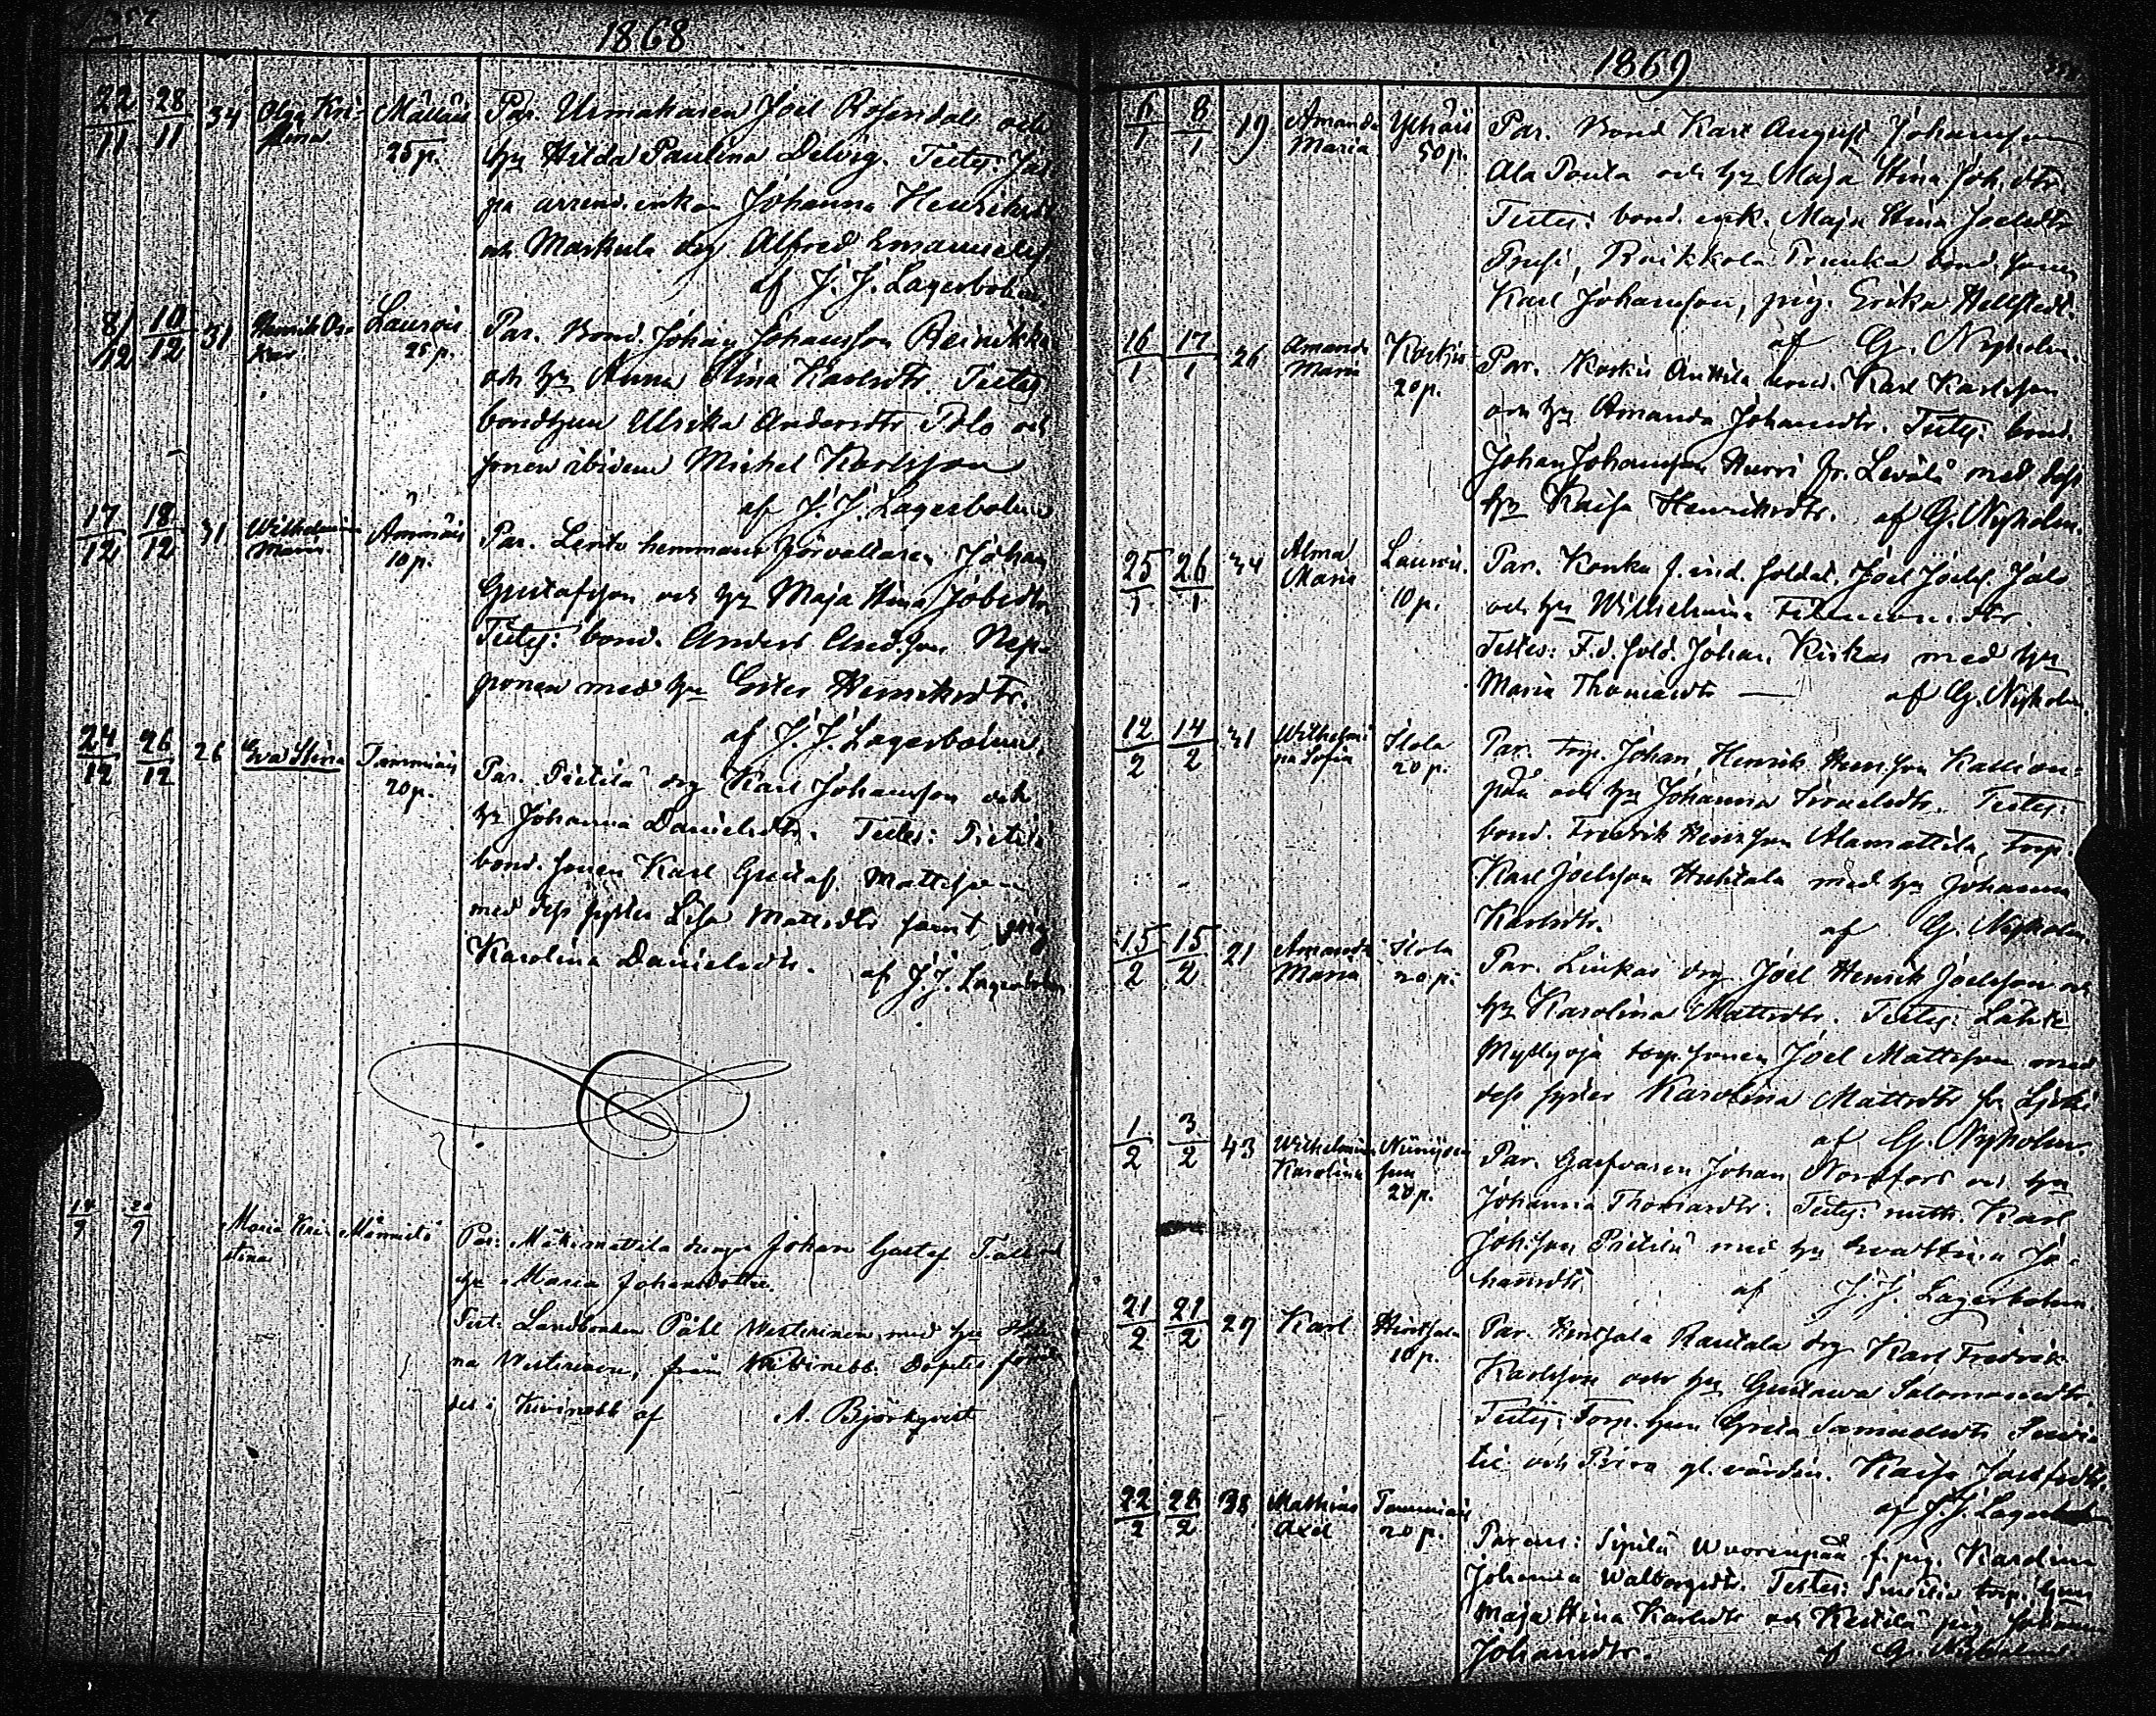 1868
22/11 28/11 34 Olga Kri-
stina
Mälläis
25 p.
Par. Urmakaren Joel Rosendal och
hu Hilda Paulina Delvig. Testes:
arrend. enkan Johanna Henriksdt
och Markula drg Alfred Emanuels
af J. J. Lagerbohm.
8/12 10/12 31 Henrik Os-
kar
Laurois
25 p.
Par. Bond. Johan Johansson Reinikka
och hu Anna Stina Karlsdtr. Testes
bondhun Ulrika Andersdtr Polo och
sonen ibidem Michel Karlsson
af J. J. Lagerbohm
17/12 18/12 31 Wilhelmina
Maria
Ämmäis
10 p.
Par. hemmans förvaltaren Johan
Gustafsson och hu Maja Stina Jobsdtr
Testes: bond. Anders And.son Nep-
ponen med hu Ester Henriksdtr.
af J. J. Lagerbohm.
24/12 26/12 26 Eva Stina
Tammiais
20 p.
Par. Pietilä drg Karl Johansson och
hu Johanna Danielsdtr. Testes: Pietilä
bond. sonen Karl Gustaf Mattsson
med dess syster Lisa Mattsdtr samt pig
Karolina Danielsdtr. af J. J. Lagerbohm
14/9 20/9
Maria Kri-
stina
Männistö
Par: Mäkimattila drengen Johan Gustaf Tall och
hu Maria Johansdotter.
Test: Landbonden Påhl Westerinen med hu
na Westerinen, från Kivinebb. Dopet förrätta
des i Kivinebb af A. Björkqvist
1869
6/1 8/1 19 Amanda
Maria
50 p.
Par. Bond Karl August Johansson
Ala Pouta och hu Maja Stina Joh.dtr.
Testes: bond. enk. Maja Stina Joelsdtr
Prusi, Raikkola Prunka bond. sonen
Karl Johansson, pig. Erika Hellstedt.
af G. Nyholm.
16/1 17/1 26 Amanda
Maria
Korkis
20 p.
Par. Korkis Anttila bond. Karl Karlsson
och hu Amanda Johansdtr. Testes: bond.
Johan Johansson Hurri fr. Levälä med dess
hu Kaisa Henriksdtr. af G. Nyholm.
25/1 26/1 34 Alma
Maria
Laurois.
10 p.
Par. Konka f. ind. soldat. Joel Joels. Jalo
och hu Wilhelmina Filemonsdtr.
Testes: F.d. sold. Johan Kiskas med hu
Maria Thomasdtr — af G. Nyholm.
12/2 14/2 31 Wilhelmi-
na Sofia
Ilola
20 p.
Par. Torp. Johan Henrik Henr.son Kallion-
pää och hu Johanna Israelsdtr. Testes:
bond. Fredrik Henr.son Alamattila, Torp.
Karl Joelsson Huhtala med hu Johanna
Karlsdtr. af G. Nyholm.
15/2 15/2 21 Amanda
Maria
Ilola
20 p.
Par. Liukas drg Joel Henrik Joelsson och
hu Karolina Mattsdtr. Testes: Lähte
Myllyoja torp. sonen Joel Mattsson med
dess syster Karolina Mattsdtr fr
af G. Nyholm.
1/2 3/2 43 Wilhelmina
Karolina
20 p.
Par. Garfvaren Johan Nordfors och hu
Johanna Thomasdtr. Testes: Karl
Johsson Pietilä med hu Eva Stina Jo-
hansdtr. af J. J. Lagerbohm
21/2 21/2 27 Karl
Hintsala
10 p.
Par. Hintsala Rautala drg Karl Fredrik
Karlsson och hu Gustava Salomonsdtr.
Testes: Torp. hun Greta Samuelsdtr
och Piira gl. värdin. Kaisa Josefsdtr.
af J. J. Lagerbohm
22/2 28/2 38 Mathias
Axel
Tammiais
20 p.
Parens: Sipilä Wuorenpää f. pig. Karolina
Johanna Walborgsdtr. Testes: torp. hun
Maja Stina Karlsdtr och Kestilä pig Johanna
Johansdtr. af G. Nyholm.